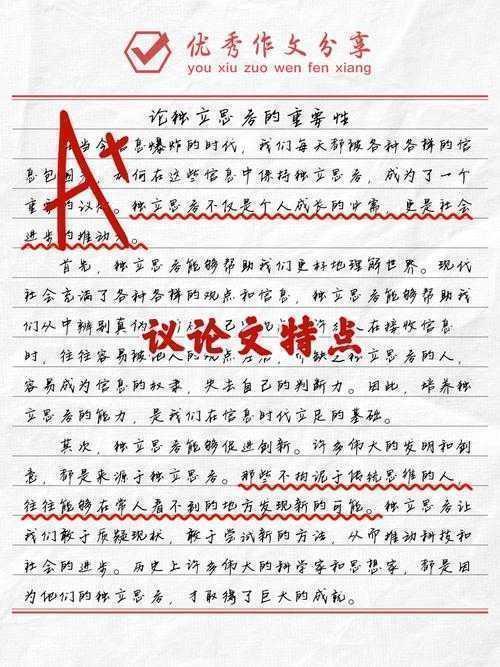 优秀作文分享
you xiu zuo wen fen xiang
论独立思考的重要性
A+
当今信息爆炸的时代,我们每天都被各种各样的信
息包围,如何在这些信息中保持独立思考,成为了一个
重要的议题。独立思考不仅是个人成长的必需,更是社会
进步的推动力。
首先,独立思考能够帮助我们更好地理解世界。现代
社会充满了各种各样的观点和信息,独立思考能够帮助我
们从中辨别真伪,己 许 人在接收信息
议论文特点
时,往往容易被他人的观点左右,缺乏独立思考的人,
容易成为信息的奴隶,失去自己的判断力。因此,培养独
立思考的能力,是我们在信息时代立足的基础。
其次,独立思考能够促进创新。许多伟大的发明和创
意,都是来源于独立思考。那些不拘泥于传统思维的人,
往往能够在常人看不到的地方发现新的可能。独立思考让
我们敢于质疑现状,敢于尝试新的方法,从而推动科技和
社会的进步。历史上许多伟大的科学家和思想家,都是因
为他们的独立思考,才取得了巨大的成就。